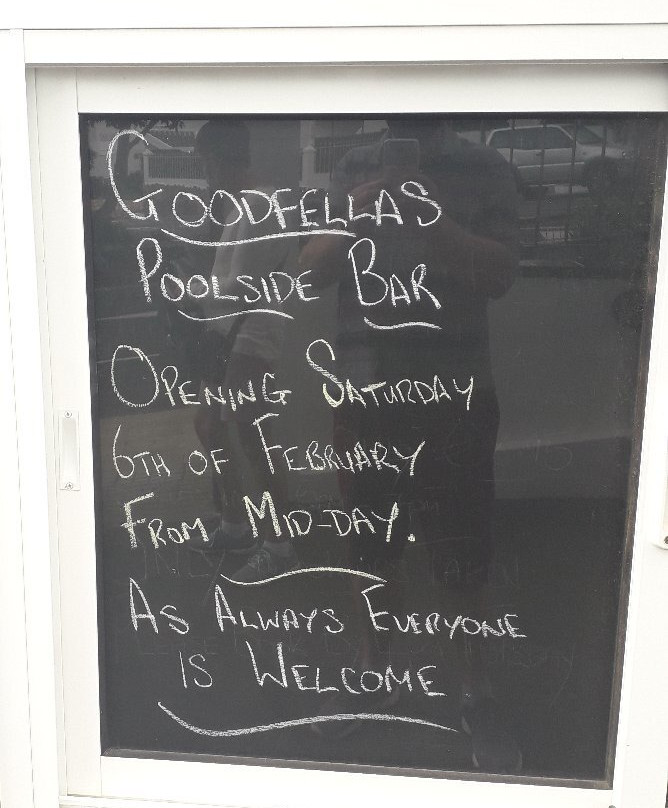 GOODFELLAS
POOLSIDE BAR
OPENING SATURDAY
6TH OF FEBRUARY
FROM MID-DAY.
AS ALWAYS EVERYONE
IS WELCOME